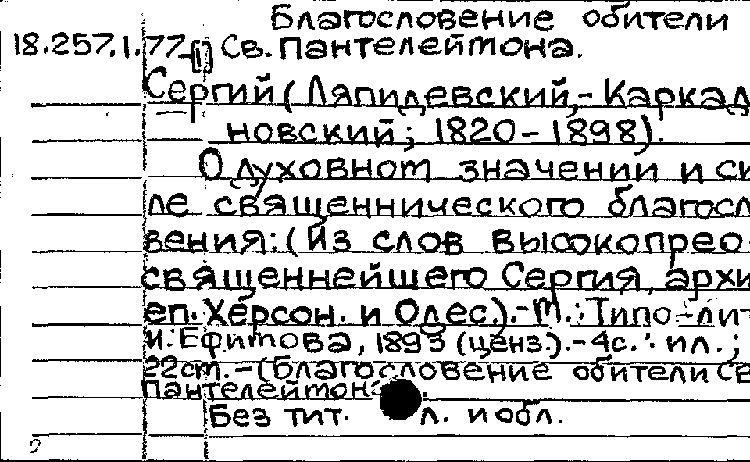 Благословение обители
18.257.1.77-[1] Св. Пантелеймона.
Сергий (Ляпидевский,- Каркад
новский; 1820-1898).
О духовном значении и си
ле священнического благосл
вения: (Из слов высокопрео
священнейшего Сергия, архи
еп. Херсон. и Одес.).-М.: Типо-лит
И. Ефимова, 1893 (ценз.).-4с.: ил.;
22см.-(Благословение обители Св
Пантелеймона.
Без тит. л. и обл.